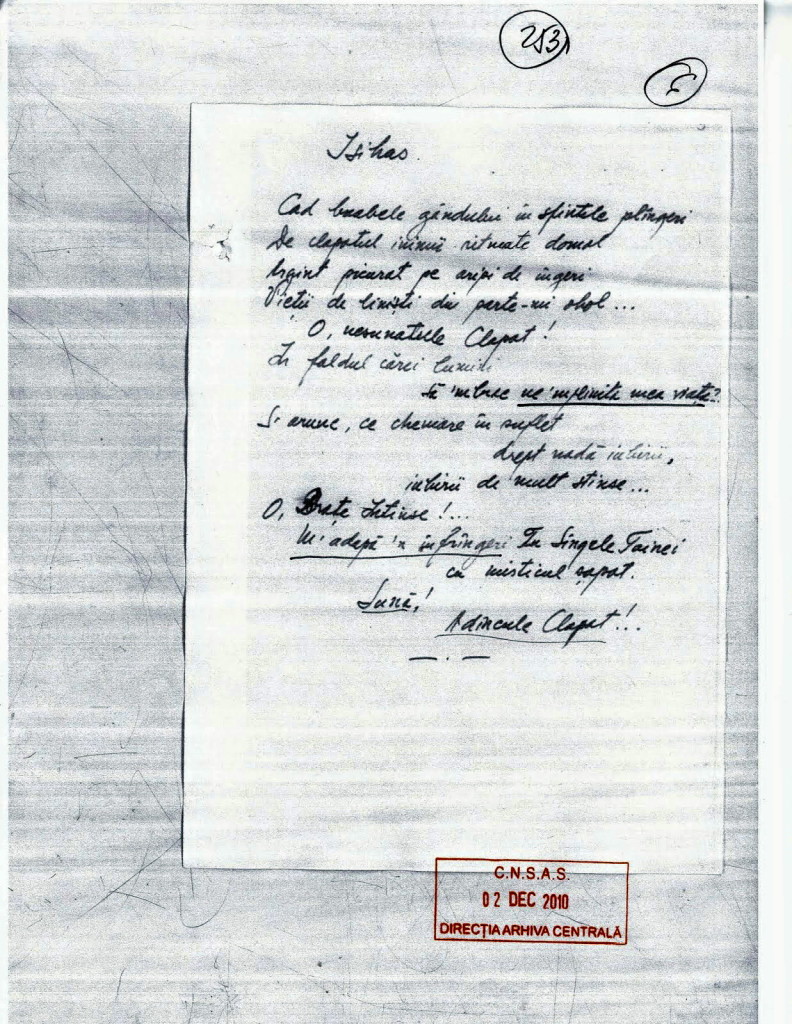 253
Isihas.
Cad boabele gândului în sfintele plîngeri
De clapotul inimii ritmate domol
Argint picurat pe aripi de îngeri
Vieții de liniști din parte-mi obol...
O, nesunatule Clapot!
În faldul cărei lumini
Să 'mbrac ne'mplinita mea viață?
Și arunc, ce chemare în suflet
drept nadă iubirii,
iubirii de mult stinse...
O, Brațe Întinse!...
M'adapă 'n înfrîngeri Tu Sîngele Tainei
cu misticul șapot.
Sună!
Adîncule Clapot!..
C.N.S.A.S.
02 DEC 2010
DIRECȚIA ARHIVA CENTRALĂ